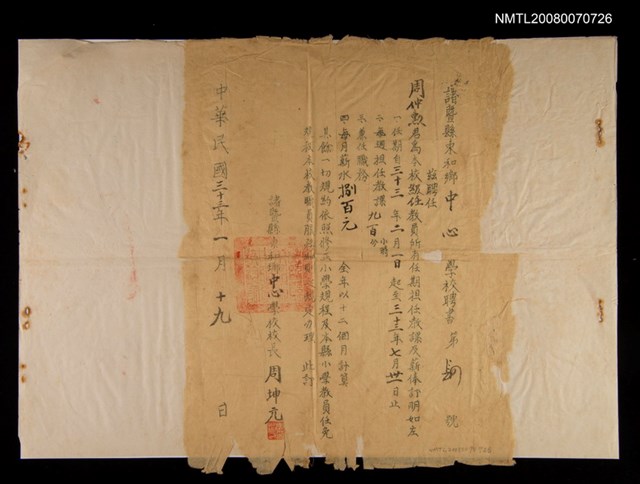 NMTL20080070726
諸暨縣東和鄉中心學校聘書 第 號
茲聘任
周仲勲君為本校級任教員所有任期担任教課及薪俸訂明如左
一 任期自三十三年二月一日起至三十三年七月卅一日止
二 每週担任教課九百分 小時
三 兼任職務
四 每月薪水捌百元 全年以十二個月計算
其餘一切規約依照修正小學規程及本縣小學教員任免
此訂
諸暨縣東和鄉中心學校校長 周坤元
中華民國三十三年一月十九日